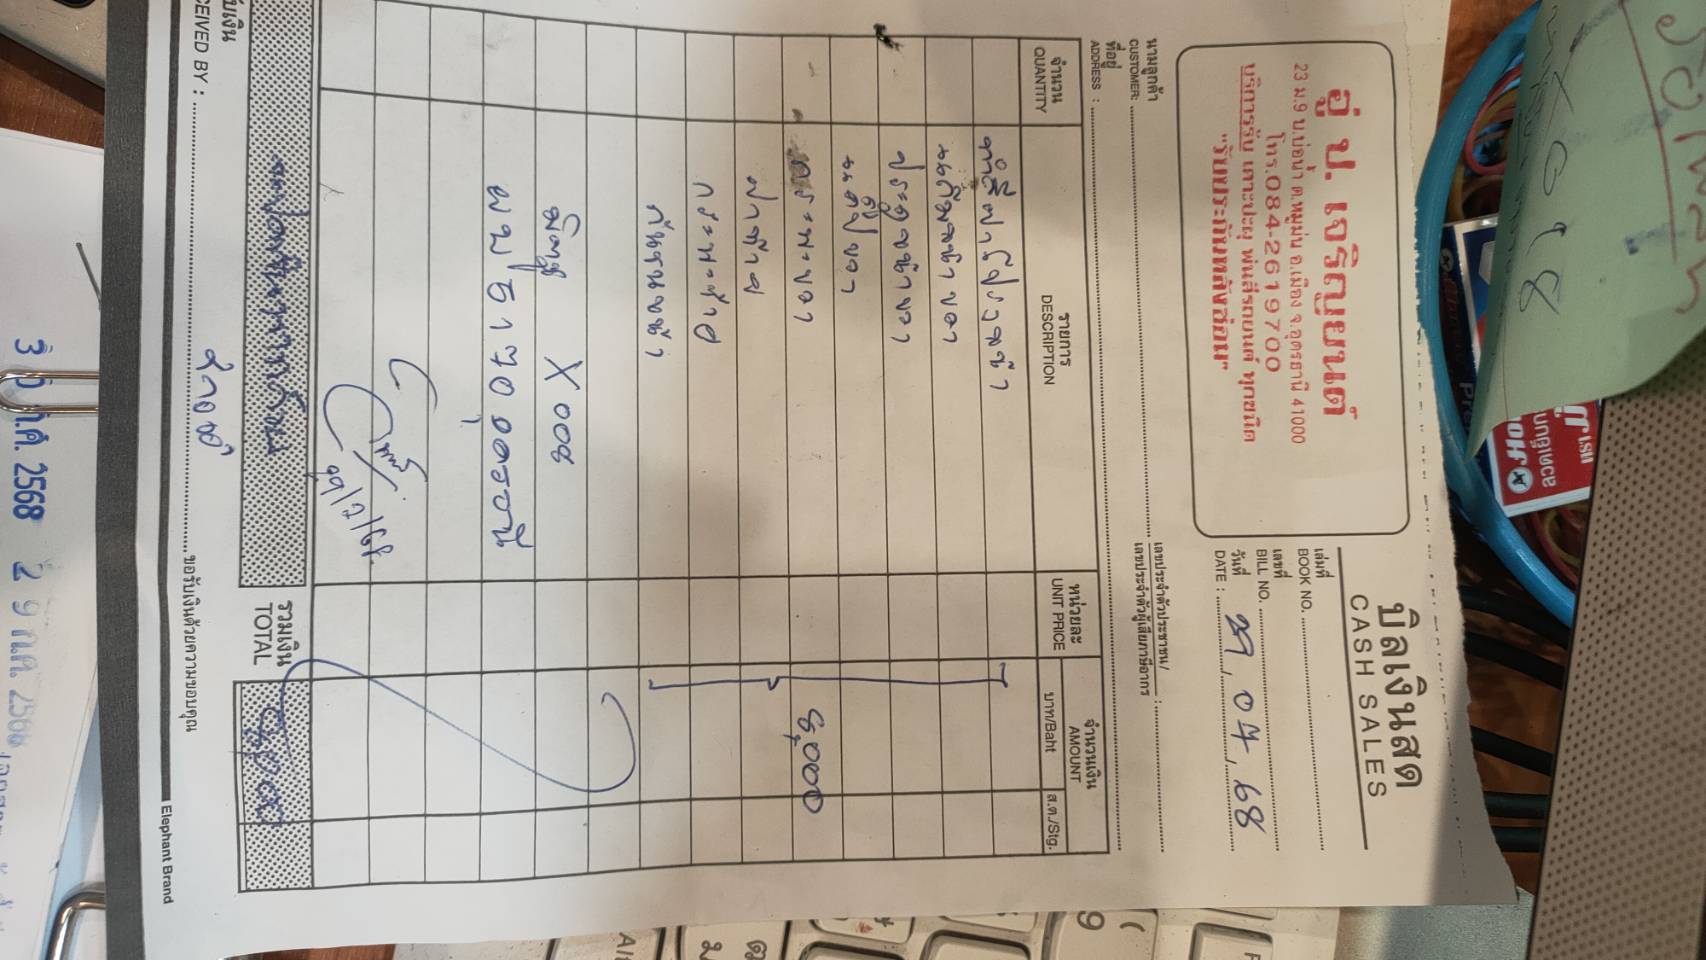 บิลเงินสด
CASH SALES
อู่ ป. เจริญยนต์
23 ม.9 บ.บ่อน้ำ ต.หมูม่น อ.เมือง จ.อุดรธานี 41000
โทร.084-2619700
บริการรับ เคาะปะผุ พ่นสีรถยนต์ ทุกชนิด
"รับประกันหลังซ่อม"
เล่มที่
BOOK NO.
เลขที่
BILL NO.
วันที่
DATE : 29/07/68
นามลูกค้า
CUSTOMER:
ที่อยู่
ADDRESS :
เลขประจำตัวประชาชน/
เลขประจำตัวผู้เสียภาษีอากร :
จำนวน
QUANTITY
รายการ
DESCRIPTION
หน่วยละ
UNIT PRICE
จำนวนเงิน
AMOUNT
บาท/Baht
ส.ต./Stg.
ทำสีฝากระโปรงหน้า
แก้มหน้าขวา
ประตูหน้าขวา
แค็ปขวา
กระบะขวา
ฝาท้าย
กระบะซ้าย
กันชนหน้า
8,000
มิตซู X008
ผบ 5170 อุดรธานี
29/7/68
แปดพันบาทถ้วน
รวมเงิน
TOTAL
8,000
รับเงิน
CEIVED BY :
ขอรับเงินด้วยความขอบคุณ
Elephant Brand
3 0 ก.ค. 2568
2 9 ก.ค. 256